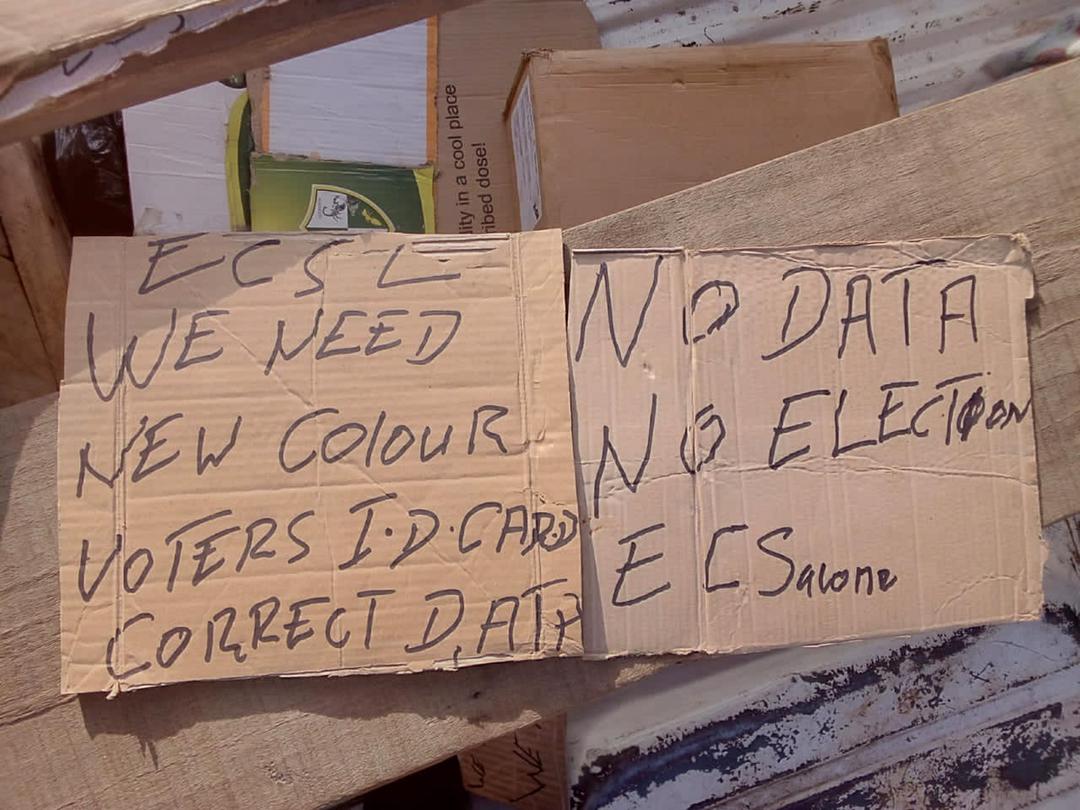 lity in a cool place
ribed dose!
ECSL
WE NEED
NEW COlOUR
VOTERS I.D.CARD
CORRECT DATA
NO DATA
NO ELECTION
ECSalone
WE